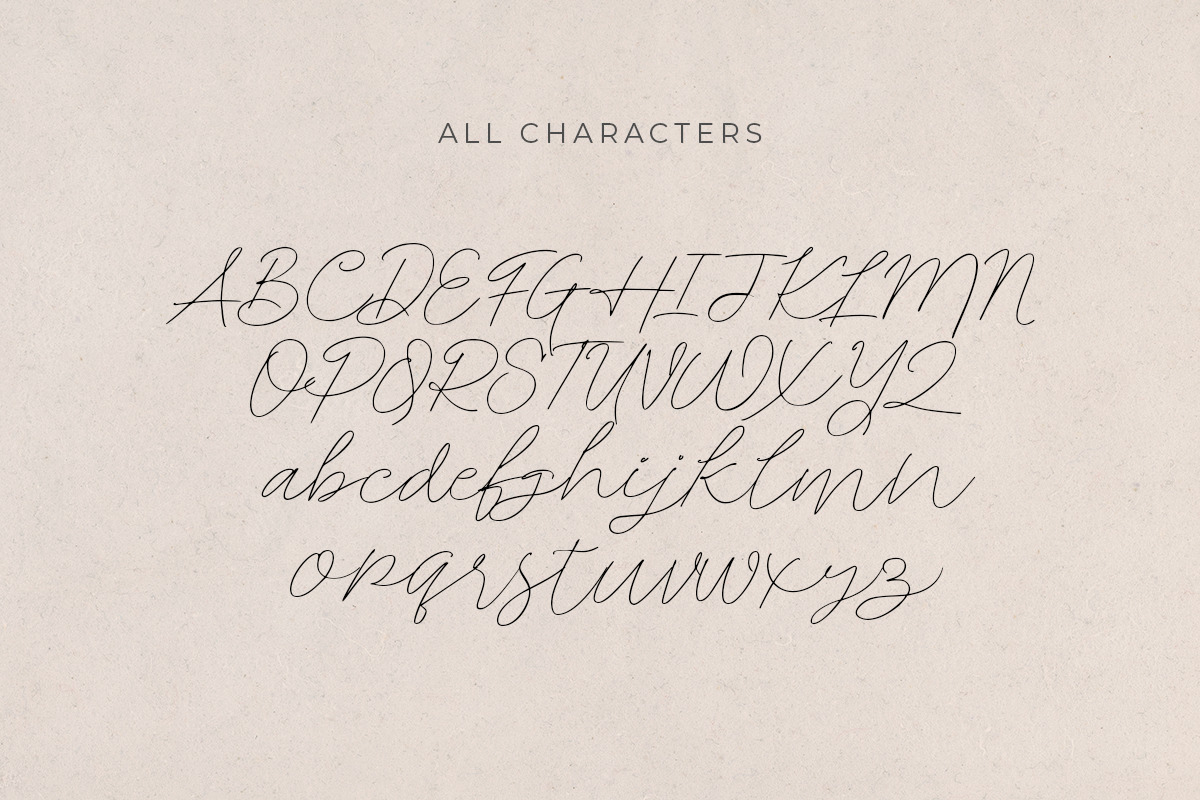 ALL CHARACTERS
ABCDEFGHIJKLMN
OPQRSTUVWXYZ
abcdefghijklmn
opqrstuvwxyz